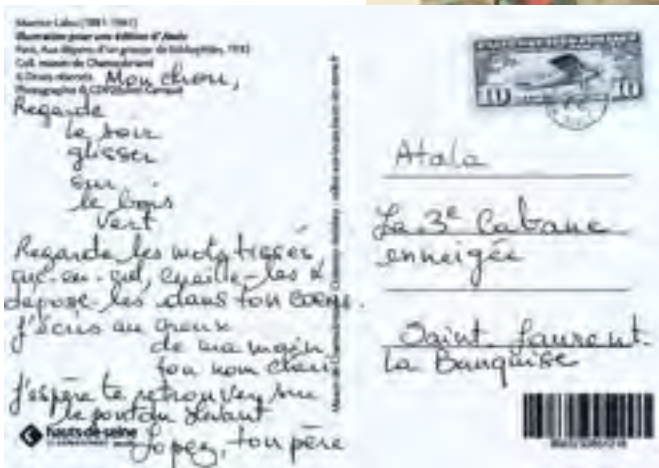 Maurice Lalau (1881-1961)
Illustration pour une édition d'Atala
Paris, Aux dépens d'un groupe de bibliophiles, 1932
Coll. maison de Chateaubriand
© Droits réservés
Photographie © CD92/
Mon chou,
Regarde
le soir
glisser
sur
le bois
vert
Regarde les mots tissés,
cueille-les &
dépose les dans ton coeur.
J'écris au creux
de ma main
ton nom
J'espère te retrouver sur
le ponton
Lopez, ton père
hauts-de-seine
Atala
La 3e Cabane
enneigée
Saint Laurent
La Banquise
10 10